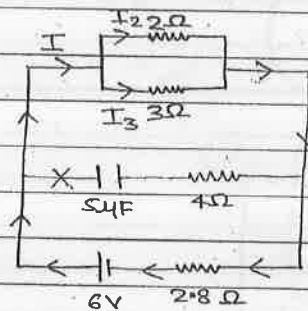 I₂ 2Ω
I
I₃ 3Ω
X
5µF 4Ω
6V 2.8 Ω